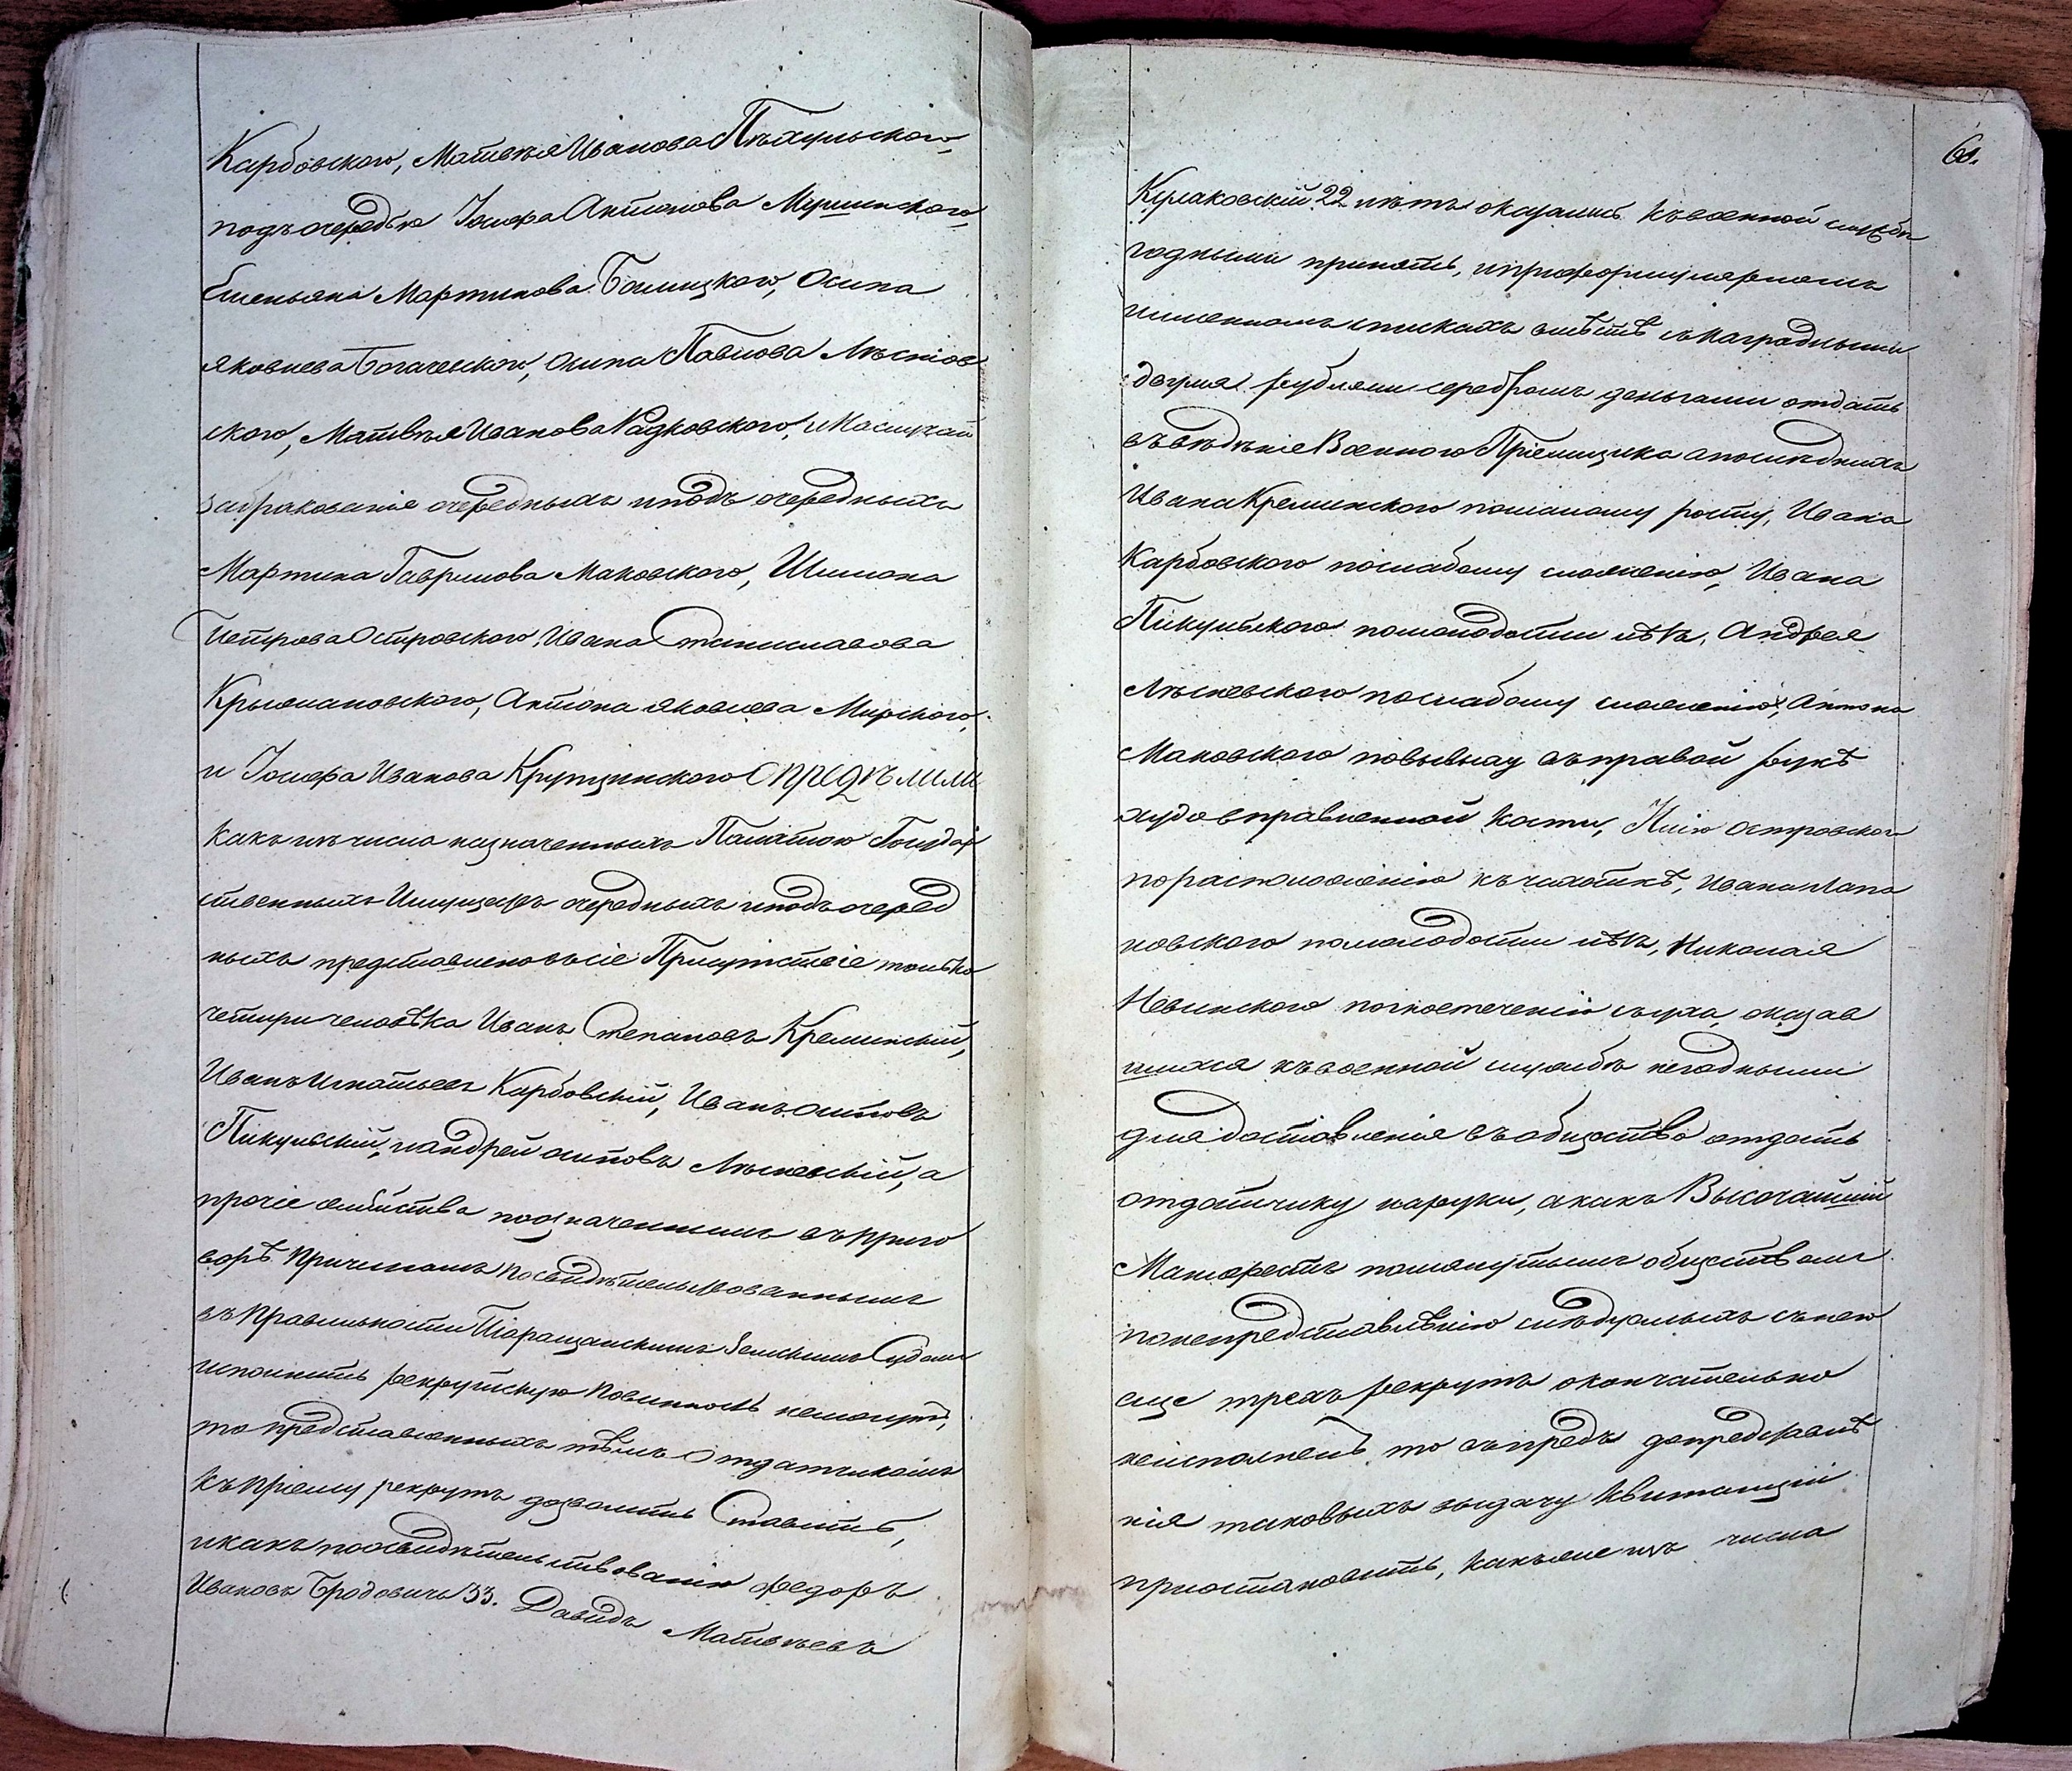 Карбовского, Матвѣя Иванова Пѣхульского,
подъ очередью Іосифа Антонова Мушинского,
Емельяна Мартинова Бѣлицкого, Осипа
Яковлева Богачевского, Осипа Павлова Лѣснов
ского, Матвѣя Иванова Радковского, и На случай
забракованія очередныхъ и подъ очередныхъ
Мартина Гаврилова Маковского, Шимона
Петрова Островского, Ивана Станиславова
Крыжановского, Антона Яковлева Мирского,
и Іосифа Иванова Крупщинского Опредѣлили
Какъ изъ числа назначенныхъ Палатою Государ
ственныхъ Имуществъ очередныхъ и подъ очеред
ныхъ представлено въ сіе Присутствіе только
четыри человѣка Иванъ Степановъ Креминскій,
Иванъ Игнатьевъ Карбовскій, Иванъ Осиповъ
Пикульскій, и андрей осиповъ Лѣсневскій, а
прочіе семѣйства по означеннымъ въ приго
ворѣ Причинамъ Посвидѣтельствованнымъ
въ Правильности Таращанскимъ Земскимъ Судомъ
исполнить рекрутскую повинность немогутъ,
то представленныхъ тѣмъ Отдатчикомъ
къ пріему рекрутъ дозволить Ставить,
и какъ по освидѣтельствованію Федоръ
Ивановъ Бродовичъ 33. Давидъ Матвѣевъ
61.
Кулаковскій 22 лѣтъ оказались къ военной службѣ
годными принять, и при формулярномъ
имменномъ спискахъ вмѣстѣ съ наградными
двумя рублями серебромъ деньгами отдать
въ вѣдѣніе Военного Пріемщика а послѣднихъ
Ивана Креминского по малому росту, Ивана
Карбовского по слабому сложенію, Ивана
Пикульского по молодости лѣтъ, Андрея
Лѣсневского по слабому сложенію, Антона
Маковского по вывиху въ правой рукѣ
худо вправленной кости, Островского
по расположенію къ чахоткѣ, Ивана
новского по молодости лѣтъ, Николая
Невинского по гноетеченію съ уха, оказав
шихся къ военной службѣ негодными
для доставленія въ общество отдать
отдатчику на руки, а какъ Высочайшій
Манифестъ помянутымъ обществомъ
по непредставлѣнію слѣдуемыхъ съ него
еще трехъ рекрутъ окончательно
неисполненъ то въ предь до представлѣ
нія таковыхъ выдачу Квитанціи
пріостановить, Какъ же изъ числа